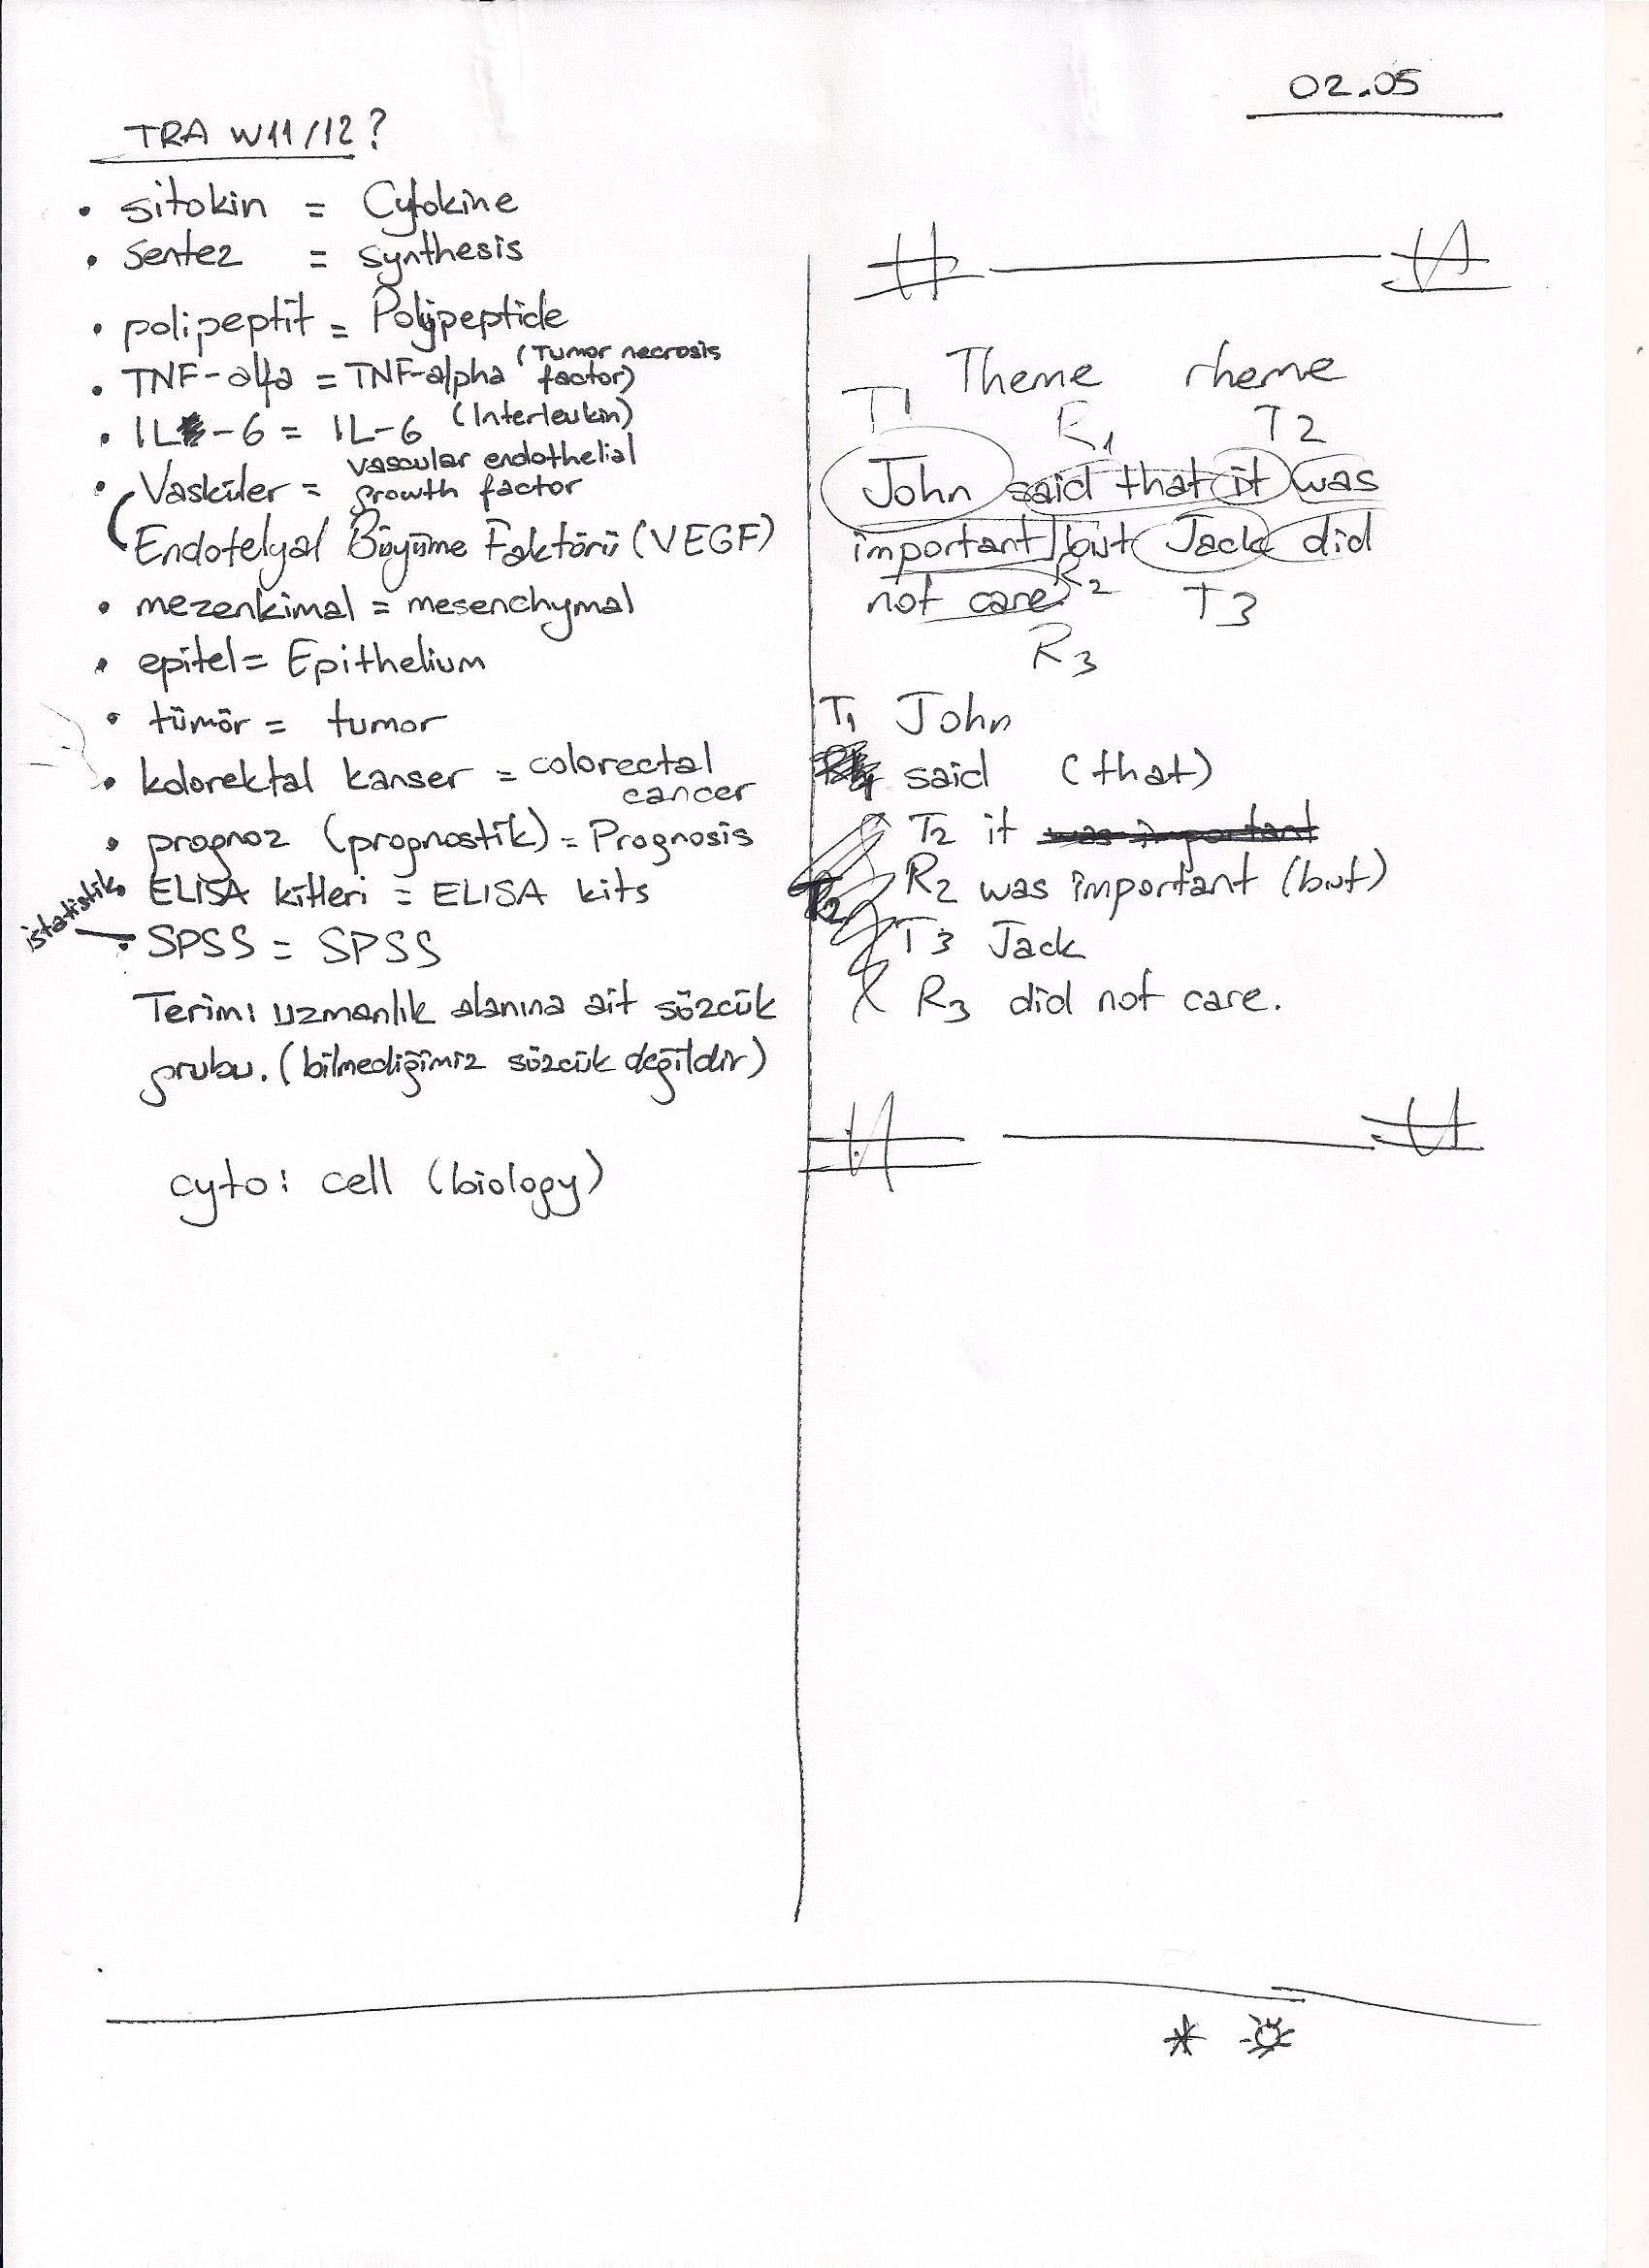 02.05
TRA W11/12?
• sitokin = Cytokine
• sentez = synthesis
• polipeptit = Polypeptide
• TNF-alfa = TNF-alpha (Tumor necrosis factor)
• IL-6 = IL-6 (Interleukin)
• Vasküler = vascular endothelial growth factor
Endotelyal Büyüme Faktörü (VEGF)
• mezenkimal = mesenchymal
• epitel = Epithelium
• tümör = tumor
• kolorektal kanser = colorectal cancer
• prognoz (prognostik) = Prognosis
• ELISA kitleri = ELISA kits
istatistik
• SPSS = SPSS
Terim: uzmanlık alanına ait sözcük
grubu. (bilmediğimiz sözcük değildir)
cyto: cell (biology)
Theme rheme
T1 R1 T2
John said that it was
important but Jack did
R2
not care. T3
R3
T1 John
said (that)
T2 it was important
R2 was important (but)
T3 Jack
R3 did not care.